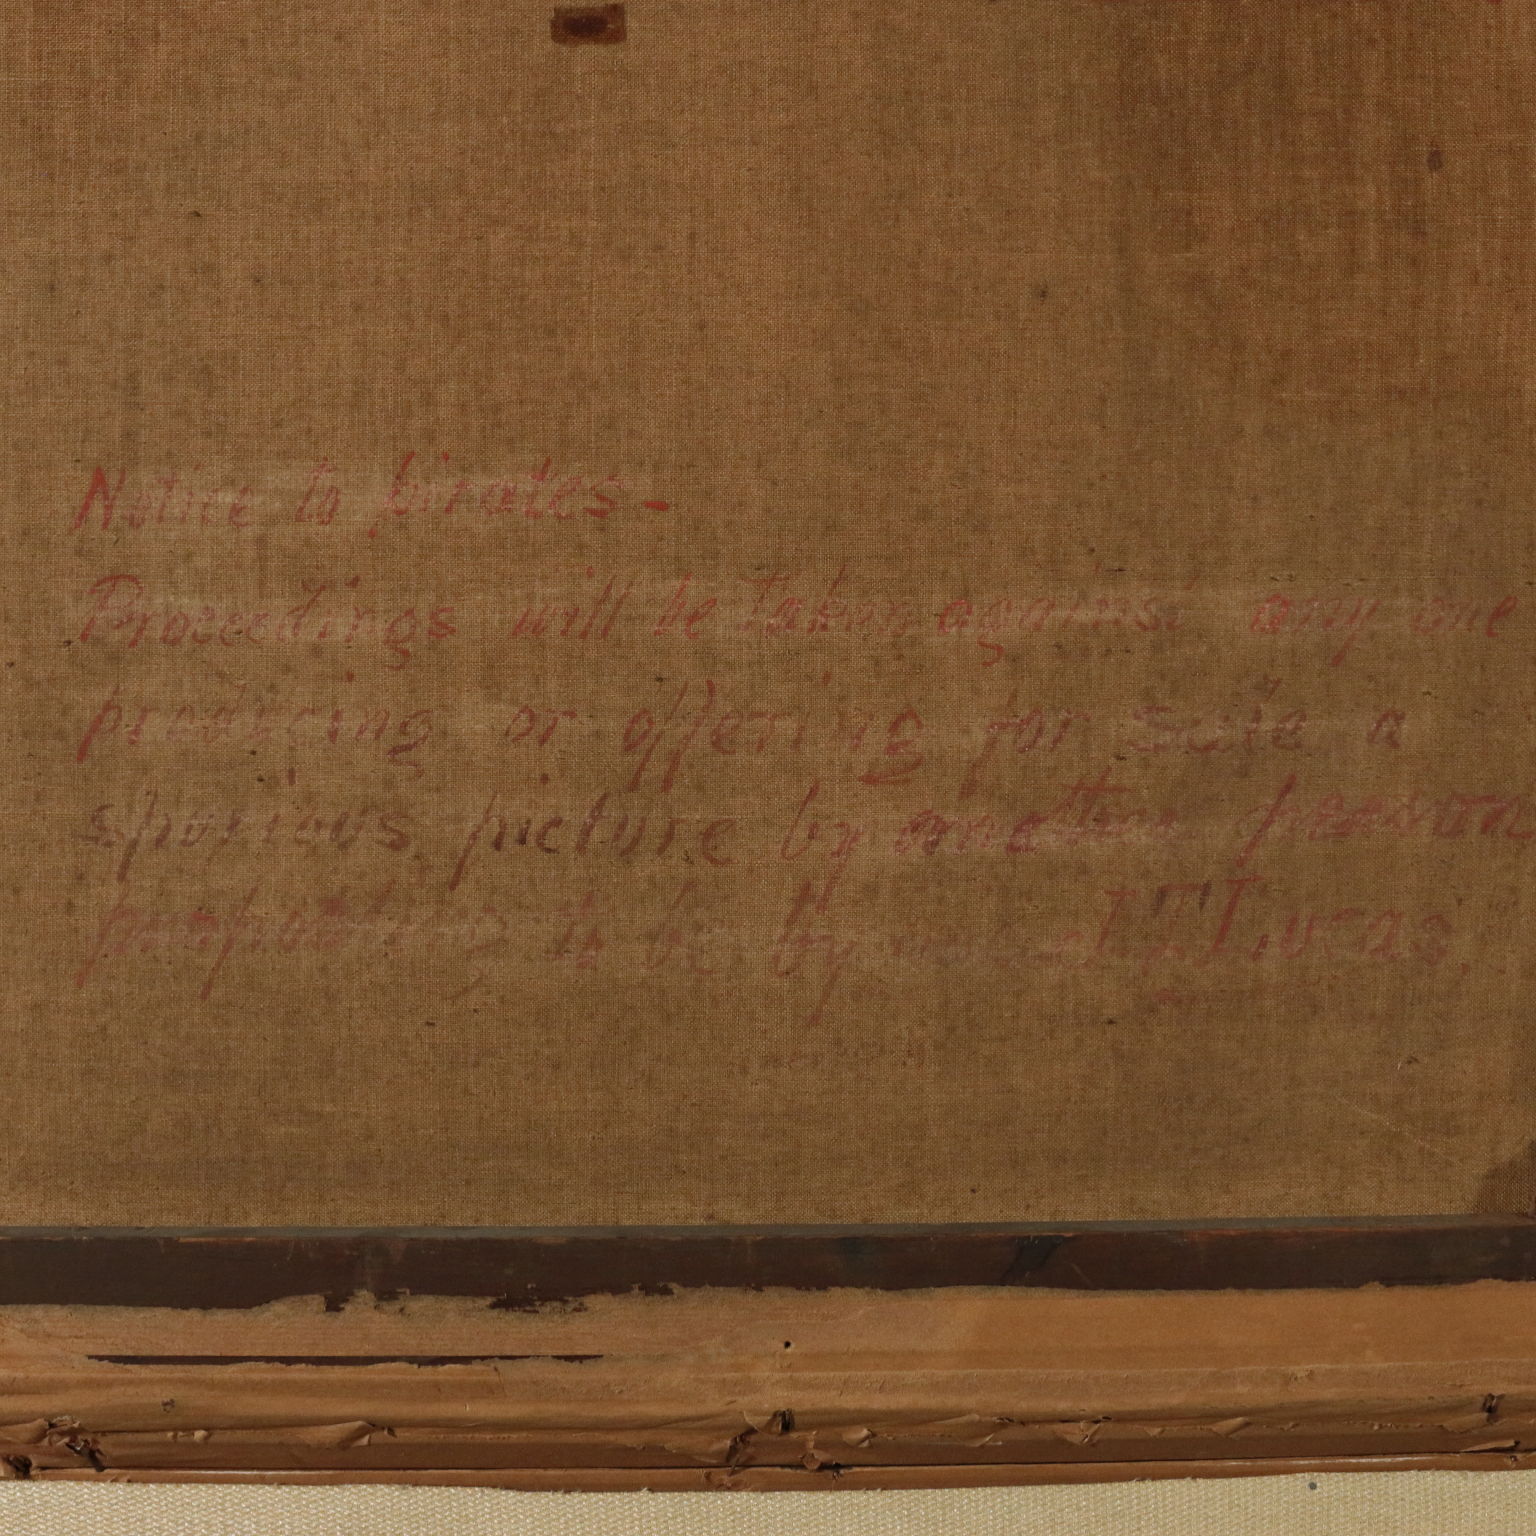 Notice to pirates -
Proceedings will be taken against any one
producing or offering for sale a
spurious picture by another person
purporting to be by me J T Lucas